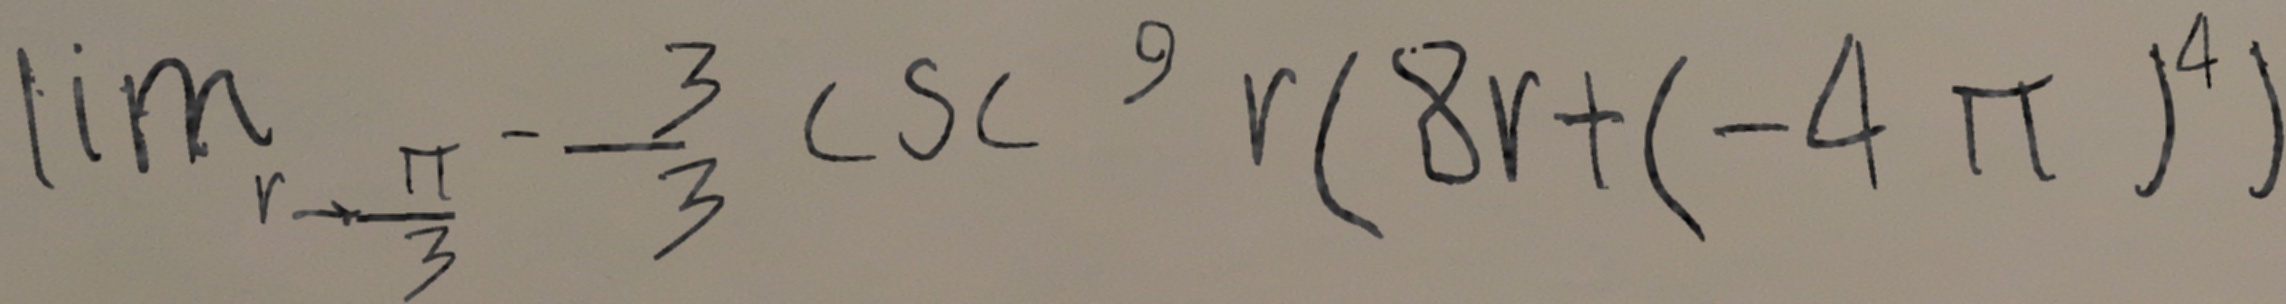 \lim_{r \to \frac{\pi}{3}} -\frac{3}{3} \csc^9 r(8r+(-4\pi)^4)